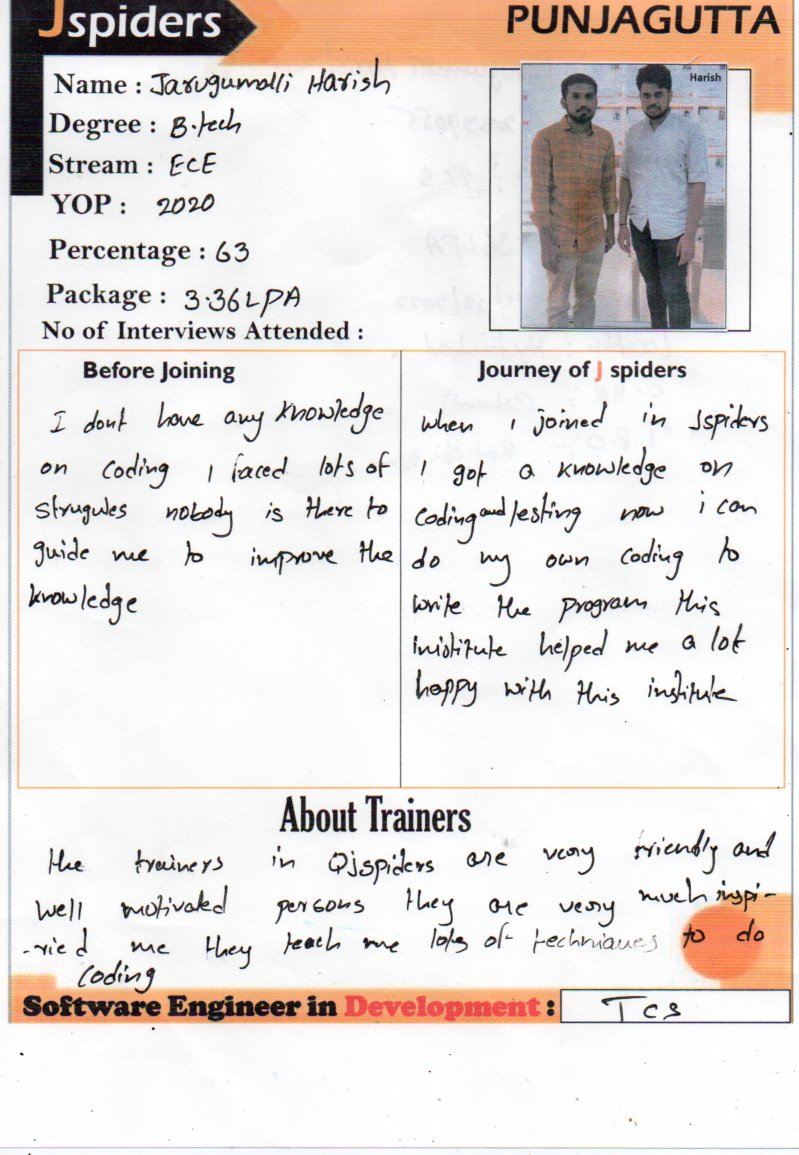 Jspiders
PUNJAGUTTA
Name : Jarugumalli Harish
Harish
Degree : B.tech
Stream : ECE
YOP : 2020
Percentage : 63
Package : 3.36LPA
No of Interviews Attended :
Before Joining
I dont have any knowledge
on coding I faced lots of
strugules nobody is there to
guide me to improve the
knowledge
Journey of J spiders
when i joined in Jspiders
I got a knowledge on
coding and testing now i can
do my own coding to
write the program this
inistitute helped me a lot
happy with this institute
About Trainers
the trainers in Qjspiders are very friendly and
well motivated persons they are very much inspi-
-ried me they teach me lots of techniques to do
coding
Software Engineer in Development : TCS